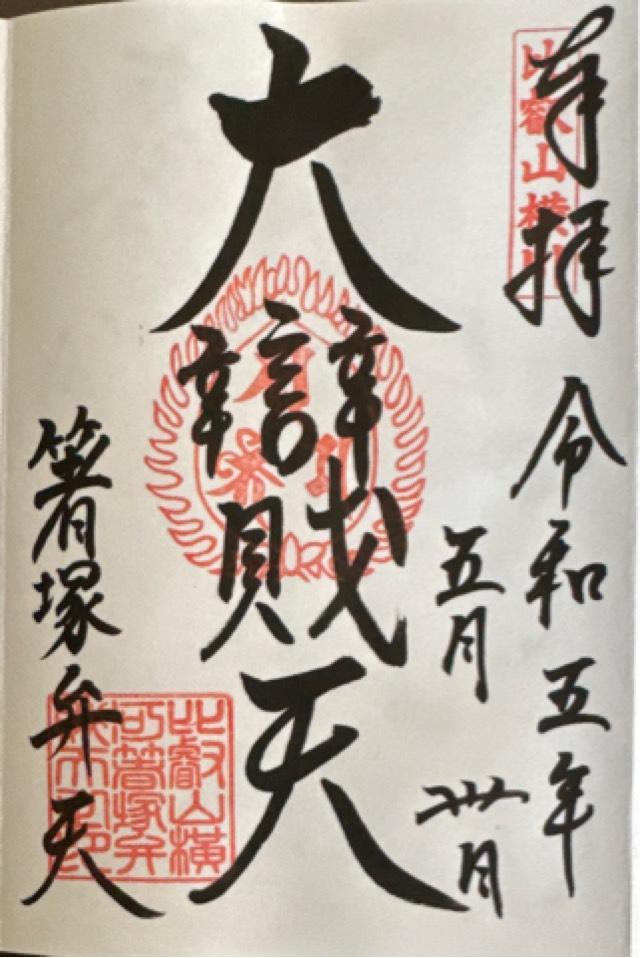 奉拝
比叡山横川
令和五年
五月卅日
大辯財天
箸塚弁天
比叡山横
箸塚弁